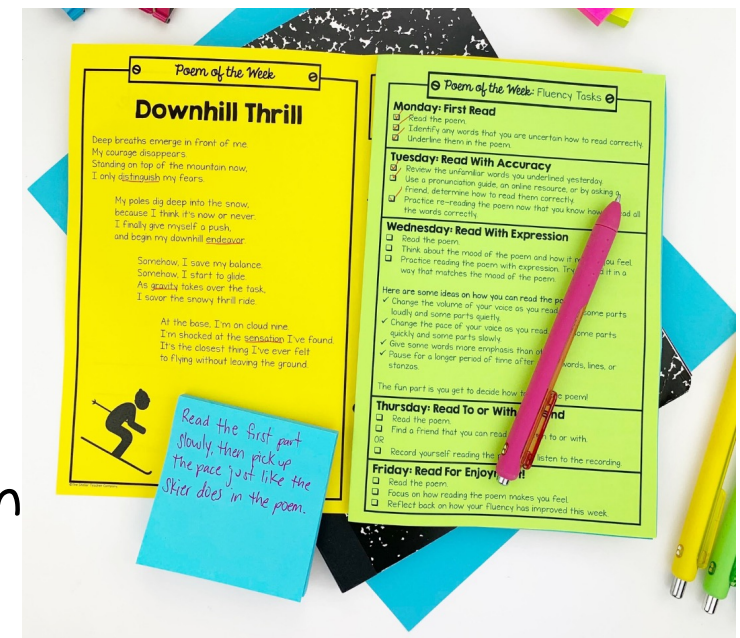 Poem of the Week
Downhill Thrill
Deep breaths emerge in front of me.
My courage disappears.
Standing on top of the mountain now,
I only distinguish my fears.
My poles dig deep into the snow,
because I think it's now or never.
I finally give myself a push,
and begin my downhill endeavor.
Somehow, I save my balance.
Somehow, I start to glide.
As gravity takes over the task,
I savor the snowy thrill ride.
At the base, I'm on cloud nine.
I'm shocked at the sensation I've found.
It's the closest thing I've ever felt
to flying without leaving the ground.
Read the first part
slowly, then pick up
the pace just like the
skier does in the poem.
Poem of the Week: Fluency Tasks
Monday: First Read
Read the poem.
Identify any words that you are uncertain how to read correctly.
Underline them in the poem.
Tuesday: Read With Accuracy
Review the unfamiliar words you underlined yesterday.
Use a pronunciation guide, an online resource, or by asking a
friend, determine how to read them correctly.
Practice re-reading the poem now that you know how all
the words correctly.
Wednesday: Read With Expression
Read the poem.
Think about the mood of the poem and how it you feel.
Practice reading the poem with expression. Try it in a
way that matches the mood of the poem.
Here are some ideas on how you can read the
✓ Change the volume of your voice as you read some parts
loudly and some parts quietly.
✓ Change the pace of your voice as you read some parts
quickly and some parts slowly.
✓ Give some words more emphasis than
✓ Pause for a longer period of time after words, lines, or
stanzas.
The fun part is you get to decide how the poem!
Thursday: Read To or With
Read the poem.
Find a friend that you can read to or with.
OR
Record yourself reading the listen to the recording.
Friday: Read For
Read the poem.
Focus on how reading the poem makes you feel.
Reflect back on how your fluency has improved this week.